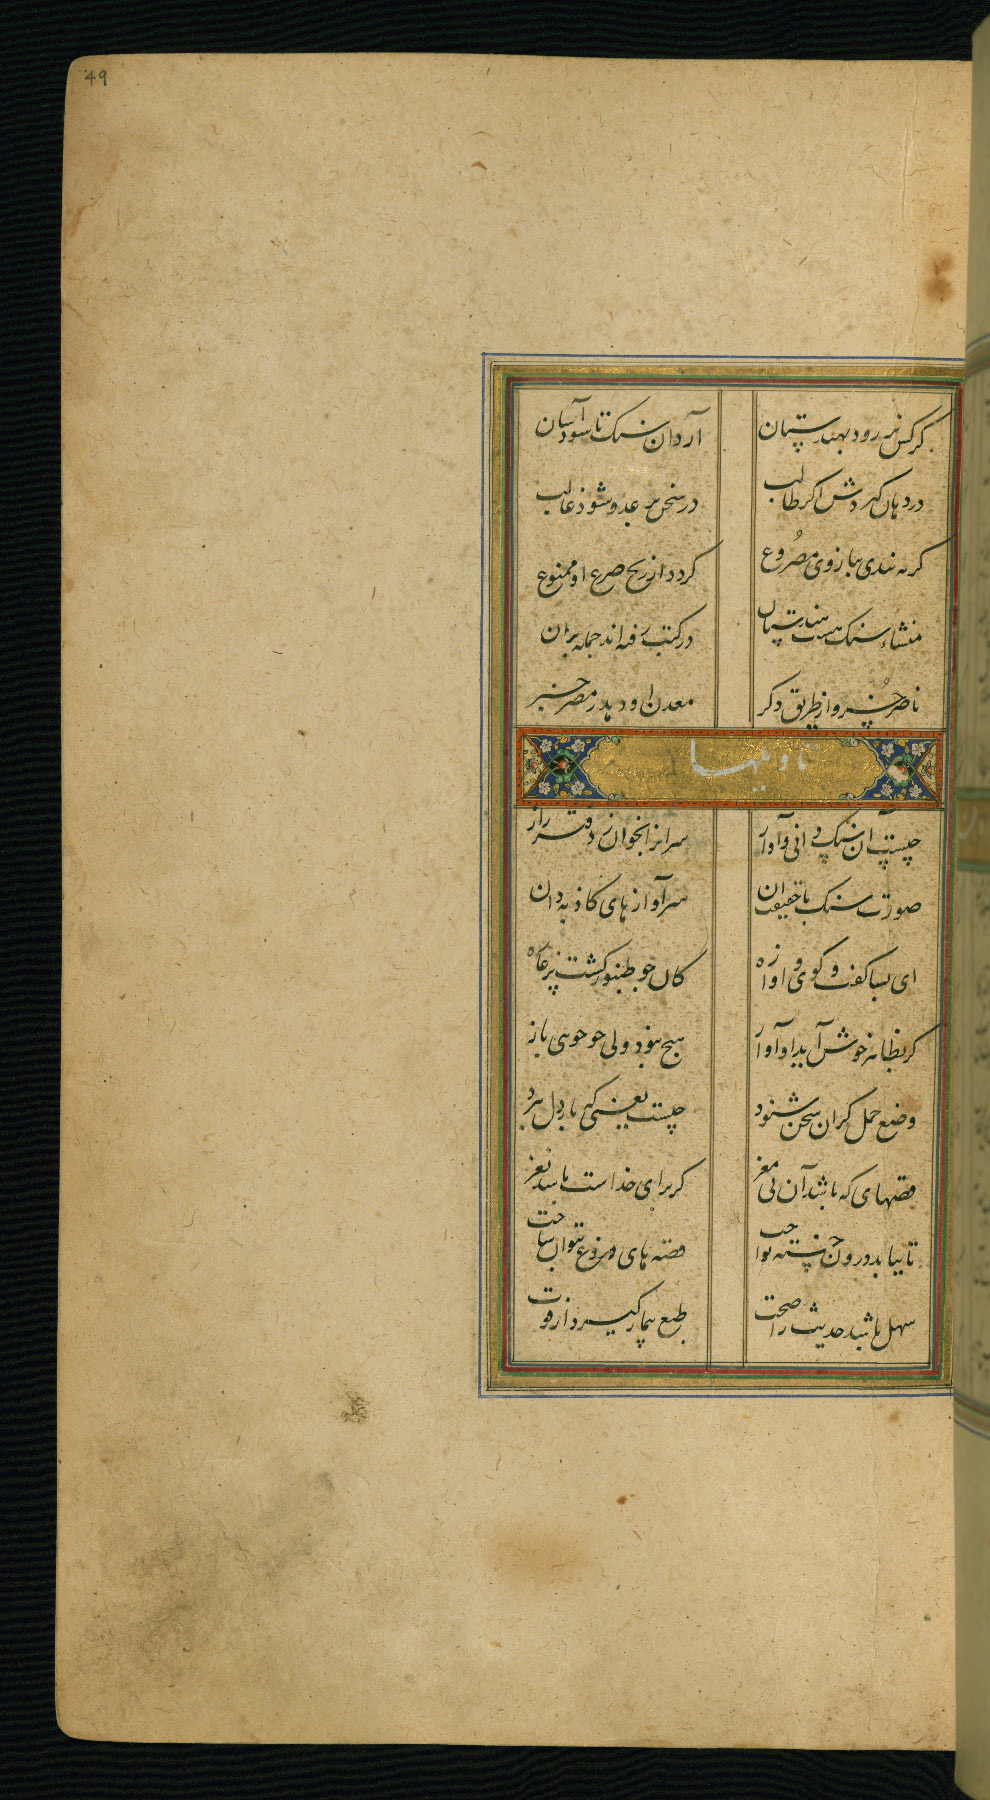 49
کرکس نر رود بهندستان
آرد آن سنک تا شود آسان
در دهان کیردش اکر طالب
در سخن بر عدو شود غالب
کر به بندی ببازوی مصروع
کردد از رنج صرع او ممنوع
منشاء سنک هست هندستان
در کتب رفته اند جمله بر آن
ناصر خسرو از طریق دکر
معدن او دهد ز مصر خبر
تاویلها
چیست آن سنک دانی و آواز
سر آنرا بخوان ز دفتر راز
صورت سنک با حقیقت دان
سر آواز های کاذبه دان
ای بسا کفت و کوی و آوازه
کان چو طنبور کشت پر
کر بظاهر خوش آید آواز
هیچ نبود ولی چو جویی باز
وضع حمل کران سخن شنود
چیست یعنی که بار دل ببرد
قصهای که باشد آن بی مغز
کر برای خداست باشد نغز
تا بیابد درون خسته نوا
قصه های دروغ نتوان ساخت
سهل باشد حدیث را صحت
طبع بیمار کیرد از قوت